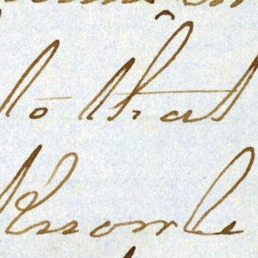 to that
Knowle